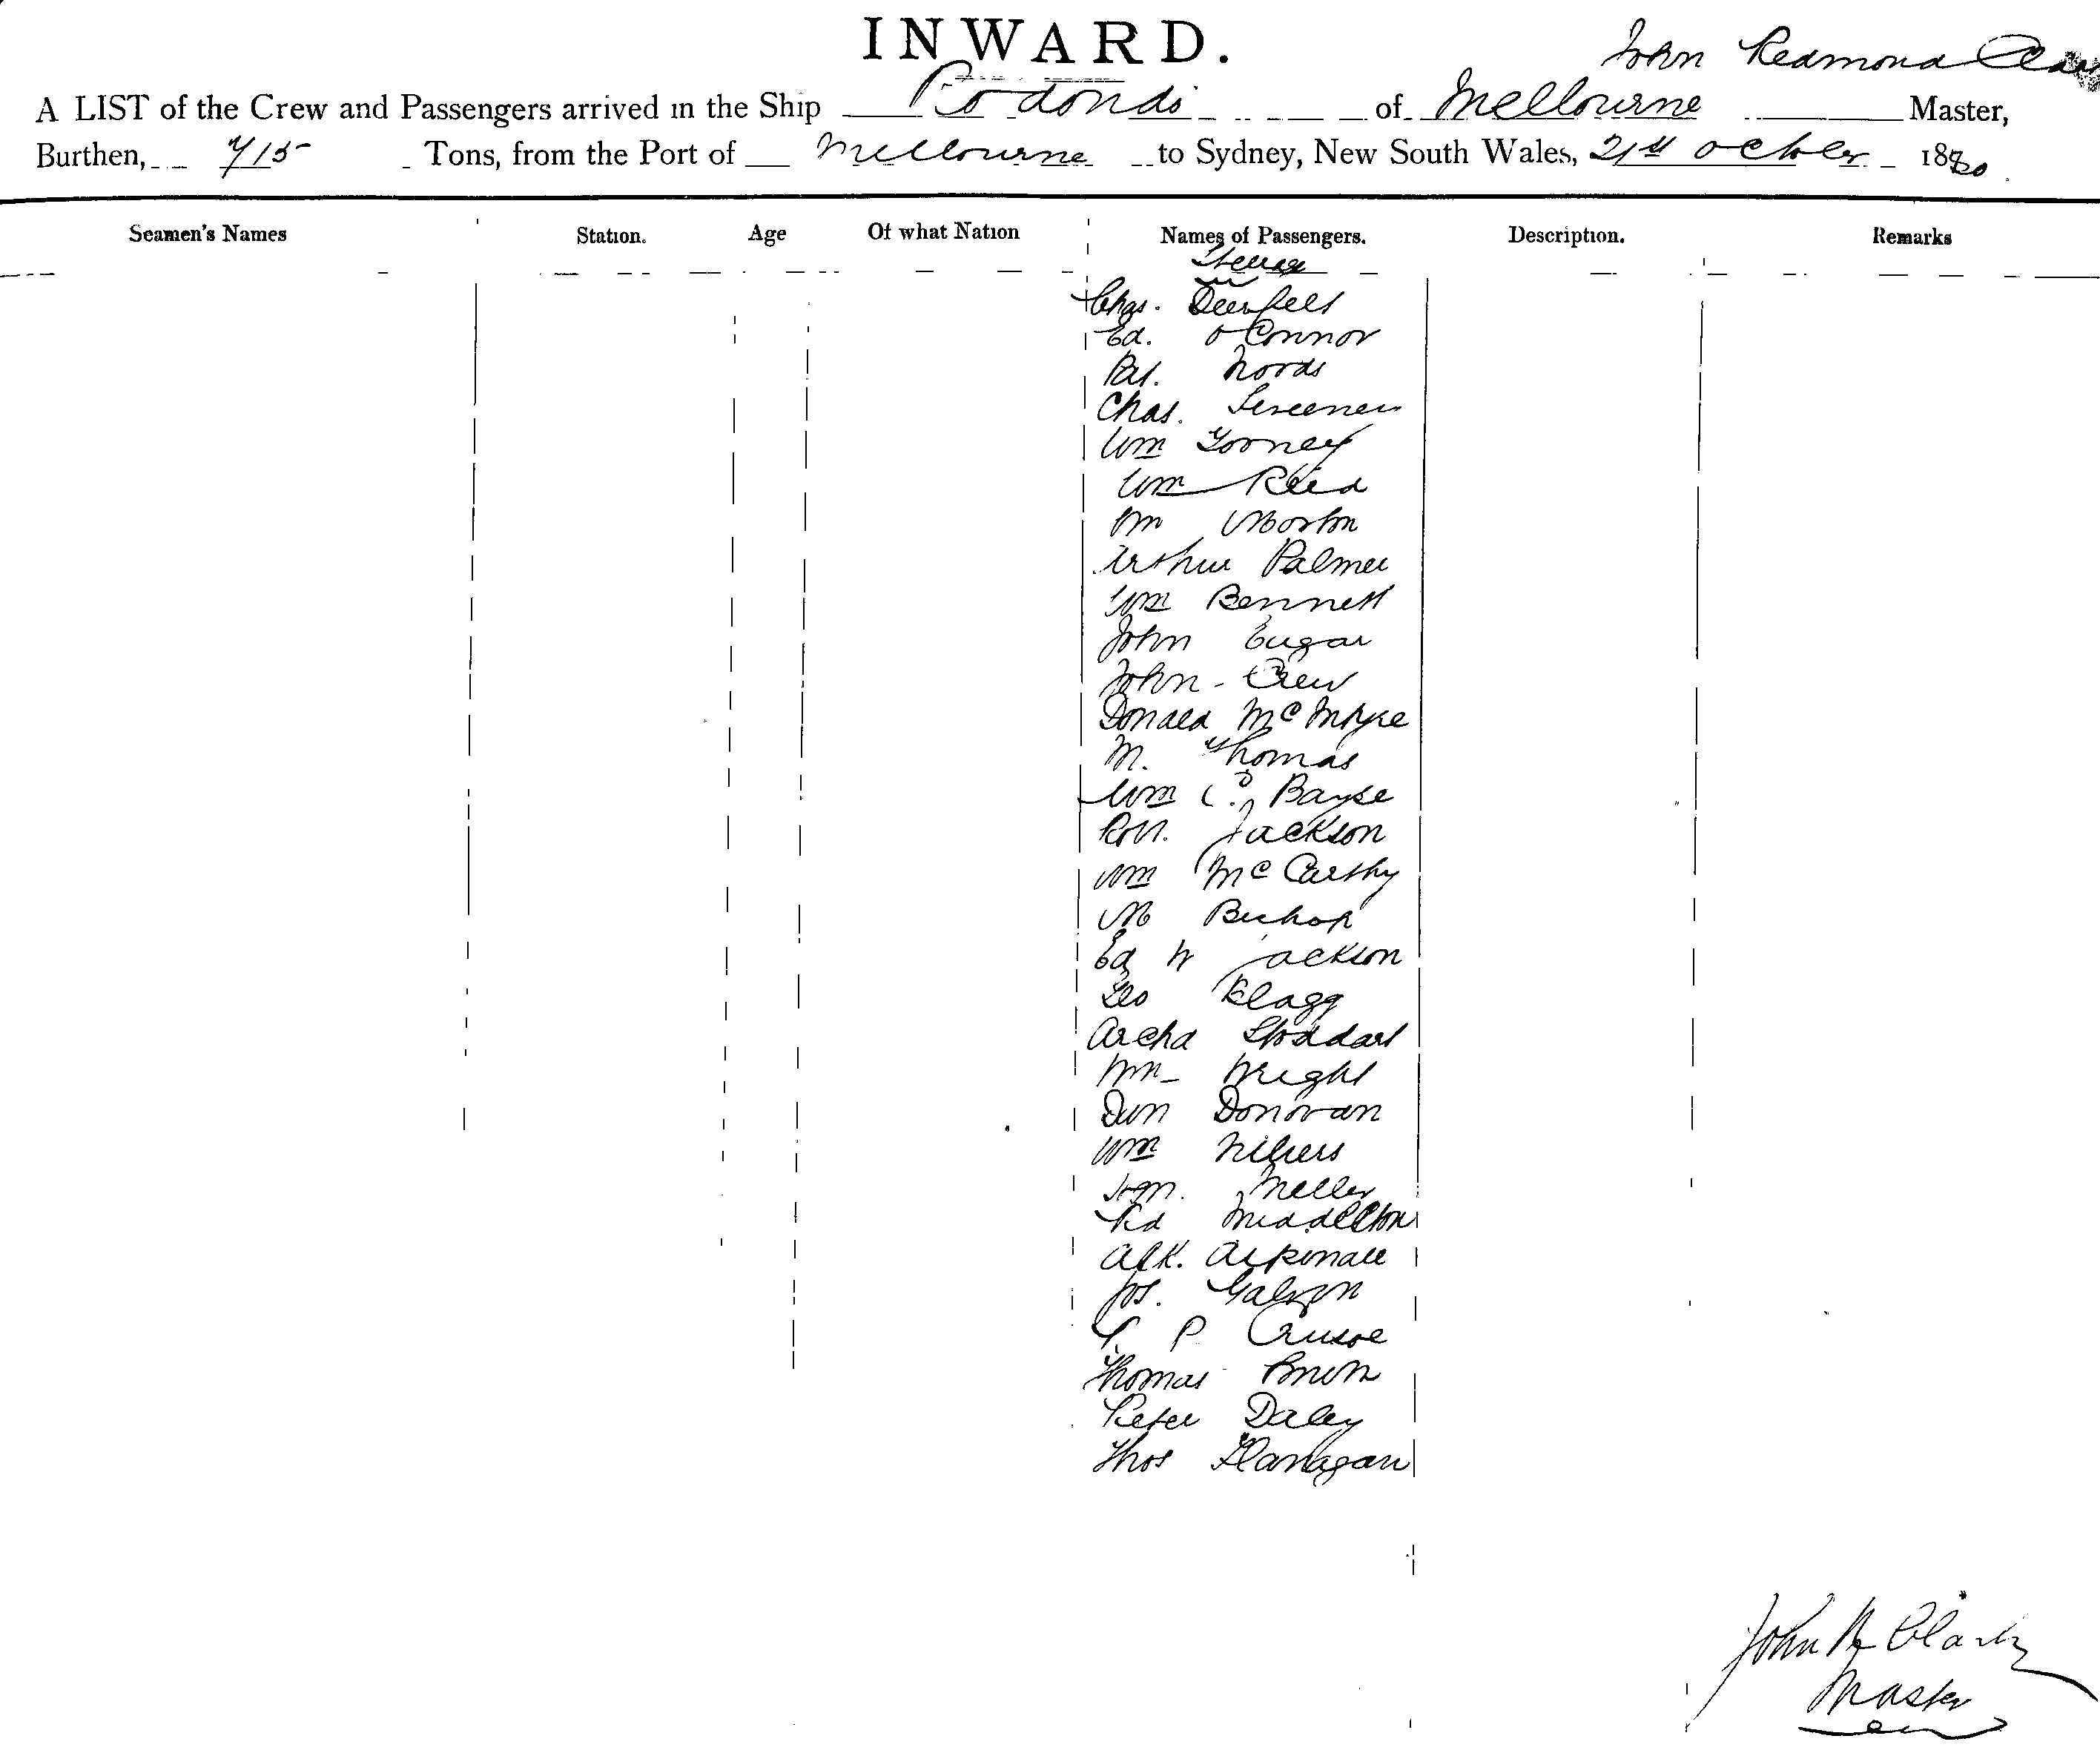 INWARD.
John Redmond
A LIST of the Crew and Passengers arrived in the Ship Rodondo of Melbourne Master,
Burthen, 715 Tons, from the Port of Melbourne to Sydney, New South Wales, 21st October 1880
Seamen's Names Station. Age Of what Nation Names of Passengers. Description. Remarks
Chas.
Ed. O Connor
Pat.
Chas.
Wm
Wm Reed
Wm Morton
Arthur Palmer
Wm Bennett
John
John Crew
Donald McIntyre
M. Thomas
Wm
Robt. Jackson
Wm McCarthy
M Bishop
Ed W Jackson
Geo Clagg
Archd Stoddart
Wm Wright
Dan Donovan
Wm
Miller
Middleton
Jos. Galvin
P Crusoe
Thomas
Peter Daley
Thos Flanagan
John R Clark
Master